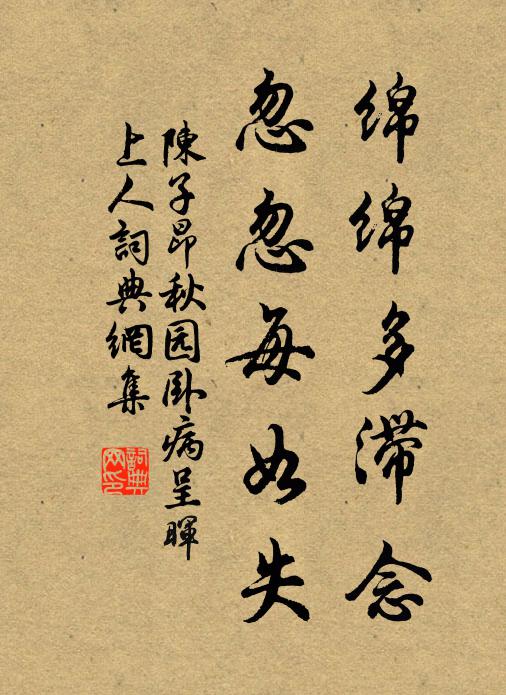 绵绵多滞念
忽忽每如失
陳子昂秋园卧病呈暉
上人詞典網集
詞典网印